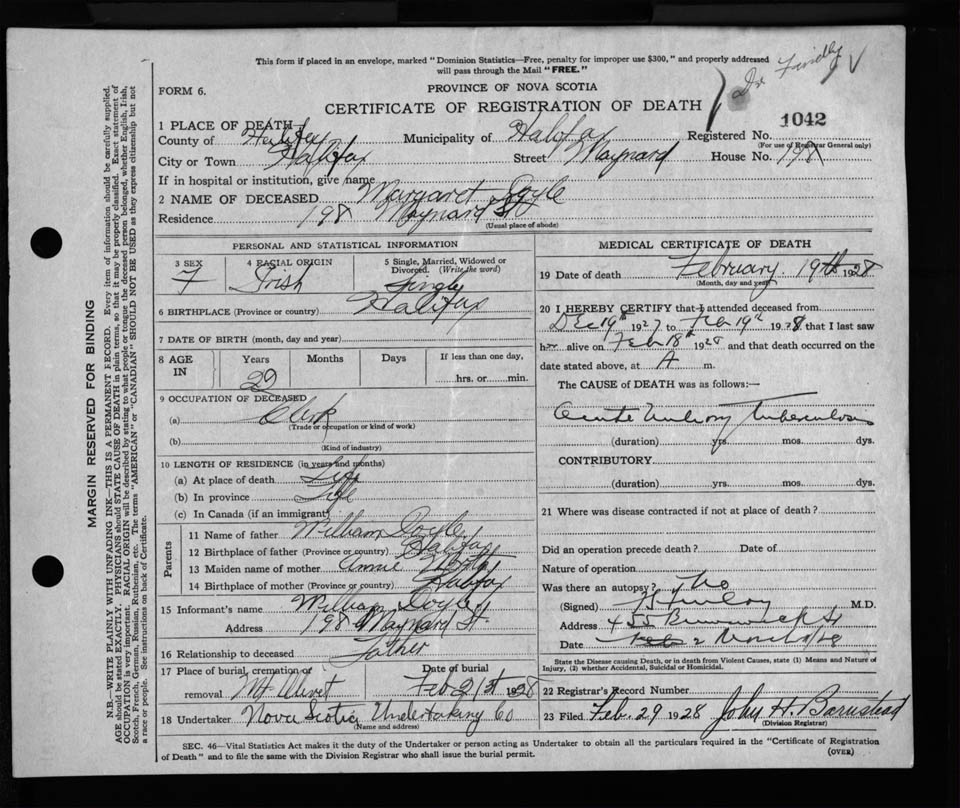 This form if placed in an envelope, marked "Dominion Statistics—Free, penalty for improper use $300," and properly addressed
will pass through the Mail "FREE."
Dr Findlay
FORM 6.
PROVINCE OF NOVA SCOTIA
CERTIFICATE OF REGISTRATION OF DEATH
1042
1 PLACE OF DEATH
County of Halifax Municipality of Halifax Registered No.
(For use of Registrar General only)
City or Town Halifax Street Maynard House No. 198
If in hospital or institution, give name
2 NAME OF DECEASED Margaret Doyle
Residence 198 Maynard St
(Usual place of abode)
PERSONAL AND STATISTICAL INFORMATION
3 SEX F
4 RACIAL ORIGIN Irish
5 Single, Married, Widowed or Divorced. (Write the word) Single
6 BIRTHPLACE (Province or country) Halifax
7 DATE OF BIRTH (month, day and year)
8 AGE IN Years 29 Months Days If less than one day, hrs. or min.
9 OCCUPATION OF DECEASED
(a) Clerk
(Trade or occupation or kind of work)
(b)
(Kind of industry)
10 LENGTH OF RESIDENCE (in years and months)
(a) At place of death Life
(b) In province Life
(c) In Canada (if an immigrant)
Parents
11 Name of father William Doyle
12 Birthplace of father (Province or country) Halifax
13 Maiden name of mother Annie
14 Birthplace of mother (Province or country) Halifax
15 Informant's name William Doyle
Address 198 Maynard St.
16 Relationship to deceased Father
17 Place of burial, cremation or removal Mt Olivet
Date of burial Feb 21st 1928
18 Undertaker Nova Scotia Undertaking Co
(Name and address)
MEDICAL CERTIFICATE OF DEATH
19 Date of death February 19th 1928
(Month, day and year)
20 I HEREBY CERTIFY that I attended deceased from
Dec 19th 1927 to Feb 19th 1928, that I last saw
h alive on Feb 18th 1928 and that death occurred on the
date stated above, at A m.
The CAUSE of DEATH was as follows:—
Acute Tuberculosis
(duration) yrs. mos. dys.
CONTRIBUTORY
(duration) yrs. mos. dys.
21 Where was disease contracted if not at place of death?
Did an operation precede death? Date of
Nature of operation
Was there an autopsy? No
(Signed) M.D.
Address 455 Brunswick St
Date
State the Disease causing Death, or in death from Violent Causes, state (1) Means and Nature of
Injury, (2) whether Accidental, Suicidal or Homicidal.
22 Registrar's Record Number
23 Filed Feb. 29 1928 John H. Barnstead
(Division Registrar)
SEC. 46—Vital Statistics Act makes it the duty of the Undertaker or person acting as Undertaker to obtain all the particulars required in the "Certificate of Registration
of Death" and to file the same with the Division Registrar who shall issue the burial permit.
(OVER)
MARGIN RESERVED FOR BINDING
N.B.—WRITE PLAINLY WITH UNFADING INK—THIS IS A PERMANENT RECORD. Every item of information should be carefully supplied.
AGE should be stated EXACTLY. PHYSICIANS should STATE CAUSE OF DEATH in plain terms, so that it may be properly classified. Exact statement of
OCCUPATION is very important. RACIAL ORIGIN will be described by stating to what people or tongue the deceased person belonged, whether English, Irish,
Scotch, French, German, Russian, Ruthenian, etc. The terms "AMERICAN" or "CANADIAN" SHOULD NOT BE USED as they express citizenship but not
a race or people. See instructions on back of Certificate.